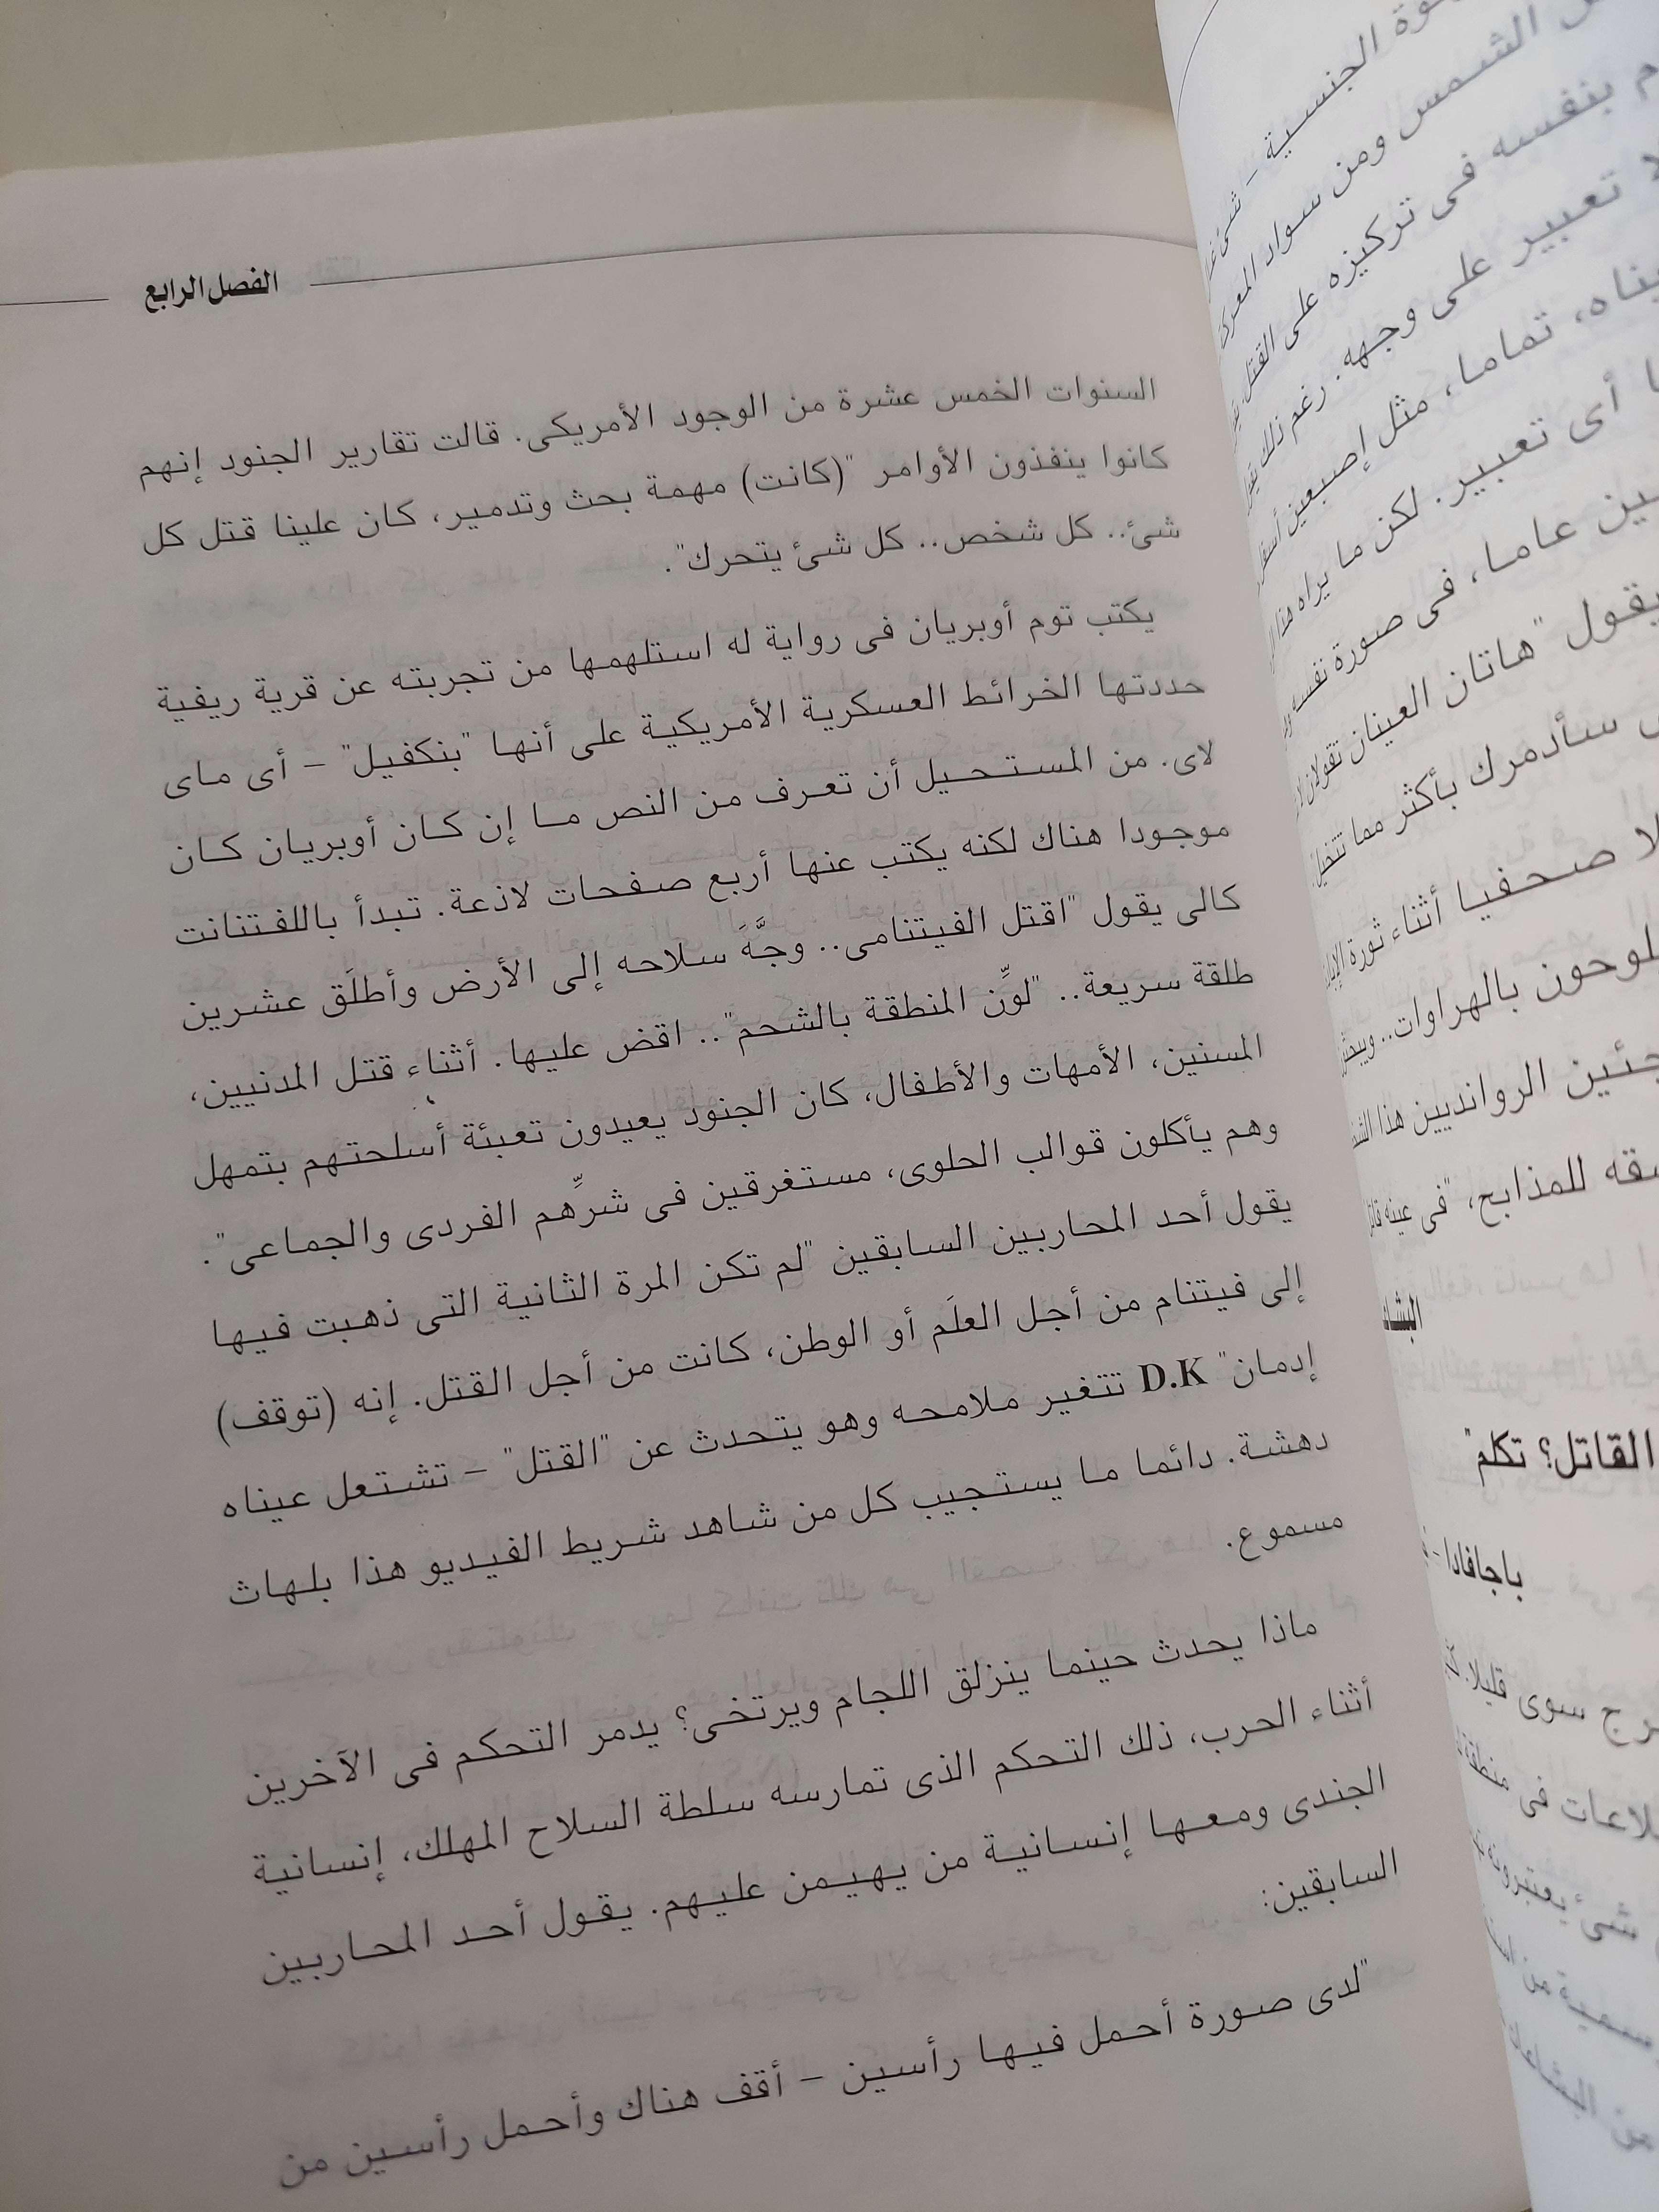 الفصل الرابع
السنوات الخمس عشرة من الوجود الأمريكى. قالت تقارير الجنود إنهم
كانوا ينفذون الأوامر "(كانت) مهمة بحث وتدمير، كان علينا قتل كل
شئ.. كل شخص.. كل شئ يتحرك".
يكتب توم أوبريان فى رواية له استلهمها من تجربته عن قرية ريفية
حددتها الخرائط العسكرية الأمريكية على أنها "بنكفيل" - أى ماى
لاى. من المستحيل أن تعرف من النص ما إن كان أوبريان كان
موجودا هناك لكنه يكتب عنها أربع صفحات لاذعة. تبدأ باللفتنانت
كالى يقول "اقتل الفيتنامى.. وجَّهَ سلاحه إلى الأرض وأطلَق عشرين
طلقة سريعة.. "لوِّن المنطقة بالشحم".. اقض عليها. أثناء قتل المدنيين،
المسنين، الأمهات والأطفال، كان الجنود يعيدون تعبئة أسلحتهم بتمهل
وهم يأكلون قوالب الحلوى، مستغرقين فى شرِّهم الفردى والجماعى".
يقول أحد المحاربين السابقين "لم تكن المرة الثانية التى ذهبت فيها
إلى فيتنام من أجل العلَم أو الوطن، كانت من أجل القتل. إنه (توقف)
إدمان" D.K تتغير ملامحه وهو يتحدث عن "القتل" - تشتعل عيناه
دهشة. دائما ما يستجيب كل من شاهد شريط الفيديو هذا بلهاث
مسموع.
ماذا يحدث حينما ينزلق اللجام ويرتخى؟ يدمر التحكم فى الآخرين
أثناء الحرب، ذلك التحكم الذى تمارسه سلطة السلاح المهلك، إنسانية
الجندى ومعها إنسانية من يهيمن عليهم. يقول أحد المحاربين
السابقين:
"لدى صورة أحمل فيها رأسين - أقف هناك وأحمل رأسين من
الجنسية - شئ
الشمس ومن سواد المعركة
بنفسه فى تركيزه على القتل
تعبير على وجهه. رغم ذلك
تماما، مثل إصبعين
أى تعبير. لكن ما يراه هذا
عاما، فى صورة نفسه
يقول "هاتان العينان تقولان
سأدمرك بأكثر مما تتخيل
صحفيا أثناء ثورة
يلوحون بالهراوات..
الروانديين هذا
للمذابح، "فى عينه
القاتل؟ تكلم"
باجافادا -
سوى قليلا.
فى منطقة
شئ يعتبرونه